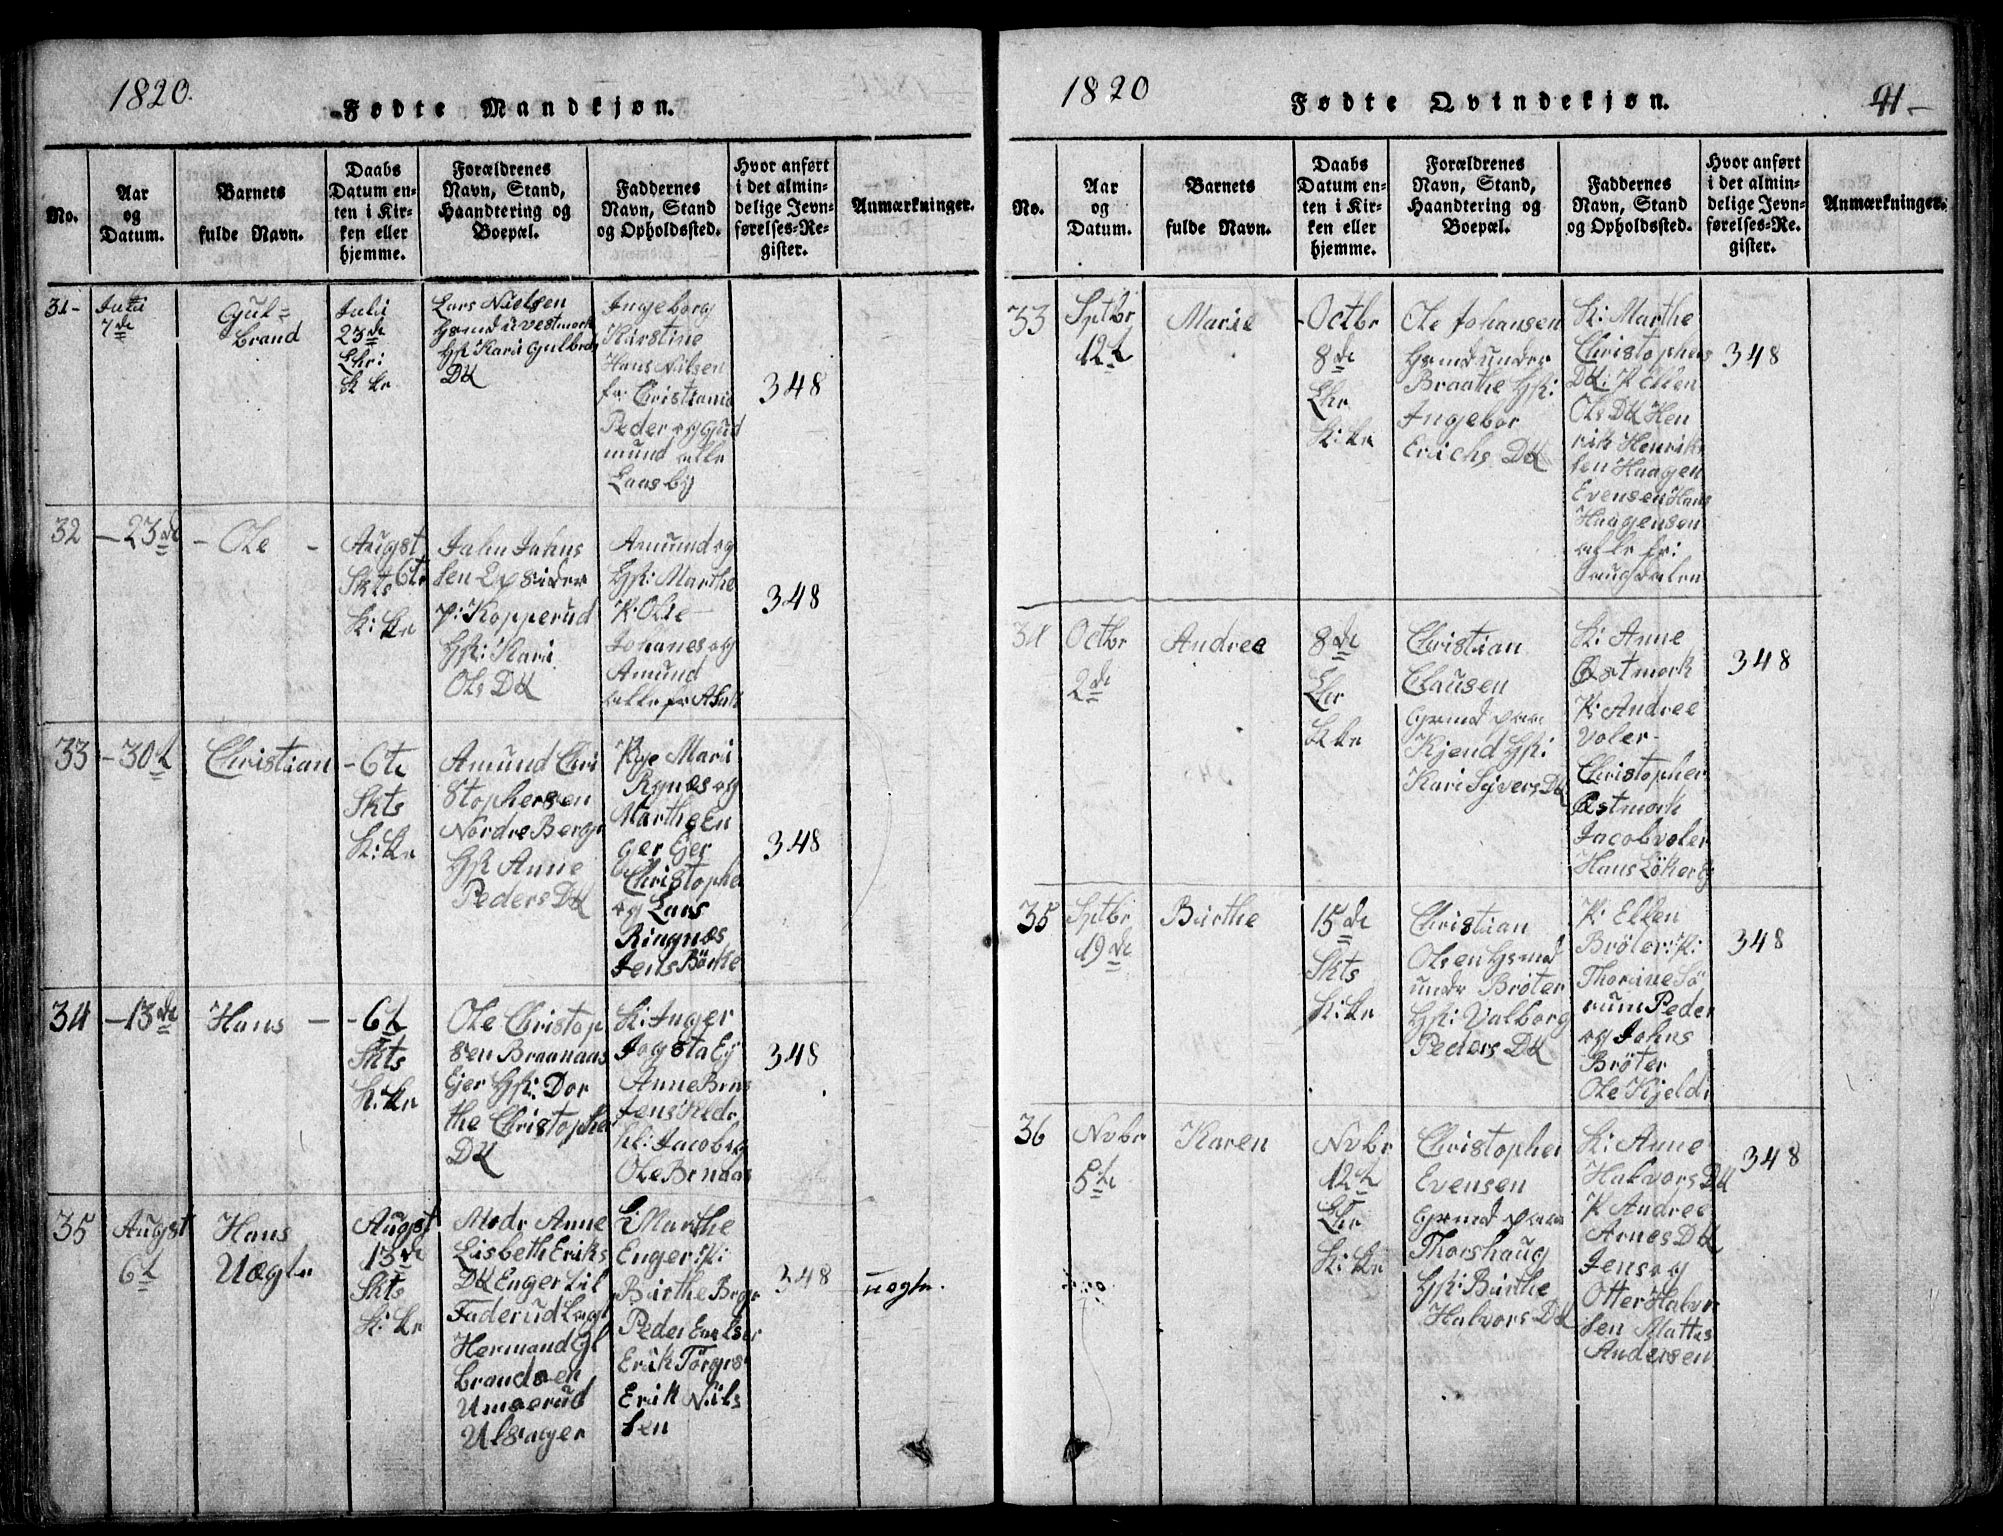 1820.
Fødte Mandkjøn.
No.
Aar
og
Datum.
Barnets
fulde Navn.
Daabs
Datum en-
ten i Kir-
ken eller
hjemme.
Forældrenes
Navn, Stand,
Haandtering og
Boepæl.
Faddernes
Navn, Stand
og Opholdssted.
Hvor anført
i det almin-
delige Jevn-
førelses-Re-
gister.
Anmærkninger.
31-
Juli
7de
Gul=
brand
Julii
23de
Chr:
K ke
Lars Nielsen
Hsmd u Vestmork
Hst Kari Gulbr
DK
Ingeborg
Karstine
Hans Nilsen
fr: Christiania
Peder og Gud
mund alle
Laasby
348
32
-23de
- Ole -
Augst
6te
Skts
K: ke
John Johns
sen Opsider
p: Kopperud
Hst: Kari
Ols DK
Amund og
Hst: Marthe
P: Olie
Johanes og
Amund
alle fr Asak
348
33
-30t
Christian
-6te
Skts
K: ke
Amund Chri
stophersen
Nordre Berge
Hst Anne
Peders DK
Pige Mari
Rynæs og
Marthe En
ger Ejer
Christophe
og Lars
Ringnæs
Jens Börke
348
34
-13de
Hans -
-6t
Skts
K: ke
Ole Christop
sen Braanaas
Ejer Hst: Dor
the Christophe
DK
K: Inger
Jogsta Ej
Anne Brns
Jens Kldr
hl: Jacob og
Ole Brnaas
348
35
Augst
6t
Hans
Uægte
Augst
13de
Skts
K: ke
Modr Anne
Lisbeth Eriks
DK Enger til
Fader udlagt
Hermand Gl
brandsen
Umserud
Ulsager
K Marthe
Enger P:
Barthe Brge
Peder Enelser
Erik Törges
Erik Niils
sen
348
uægte.
1820
Fødte Qvindekjøn.
41-
No.
Aar
og
Datum.
Barnets
fulde Navn.
Daabs
Datum en-
ten i Kir-
ken eller
hjemme.
Forældrenes
Navn, Stand,
Haandtering og
Boepæl.
Faddernes
Navn, Stand
og Opholdssted.
Hvor anført
i det almin-
delige Jevn-
førelses-Re-
gister.
Anmærkninger.
33
Sptbr
12t
Marie
-Octbr
8de
Chr
K: ke
Ole Johansen
Hsmd under
Braathe Hst:
Ingebor
Erichs DK
K: Marthe
Christophers
DK: P Ellen
Ols DK Hen
rik Henrik
sen Haagen
Evensen Hans
Haagensen
alle fr:
Saugdalen
348
34
Octbr
2de
Andrea
8de
Chr
K ke
Christian
Clausen
Grmd paa
Kjend Hst:
Kari Syvers DK
K: Anne
Østmork
P: Andrea
Voler-
Christopher
Østmork
Jacob Voler
Hans Lökerby
348
35
Sptbr
19de
Barthe
15de
Skts
K: ke
Christian
Olsen Hsmd
under Bröter
Hst: Valborg
Peders DK
K: Ellen
Bröter: P:
Thorine Sö
rum Peder
og Johns
Bröter
Ole Kjelds
348
36
Nvbr
5te
Karen
Nvbr
12t
Chr
K: ke
Christopher
Evensen
Grmd paa
Thorshaug
Hst: Barthe
Halvors DK
K: Anne
Halvors DK
P Andrea
Arnes DK
Jens og
Otter Halvr
sen Mattes
Andersen
348